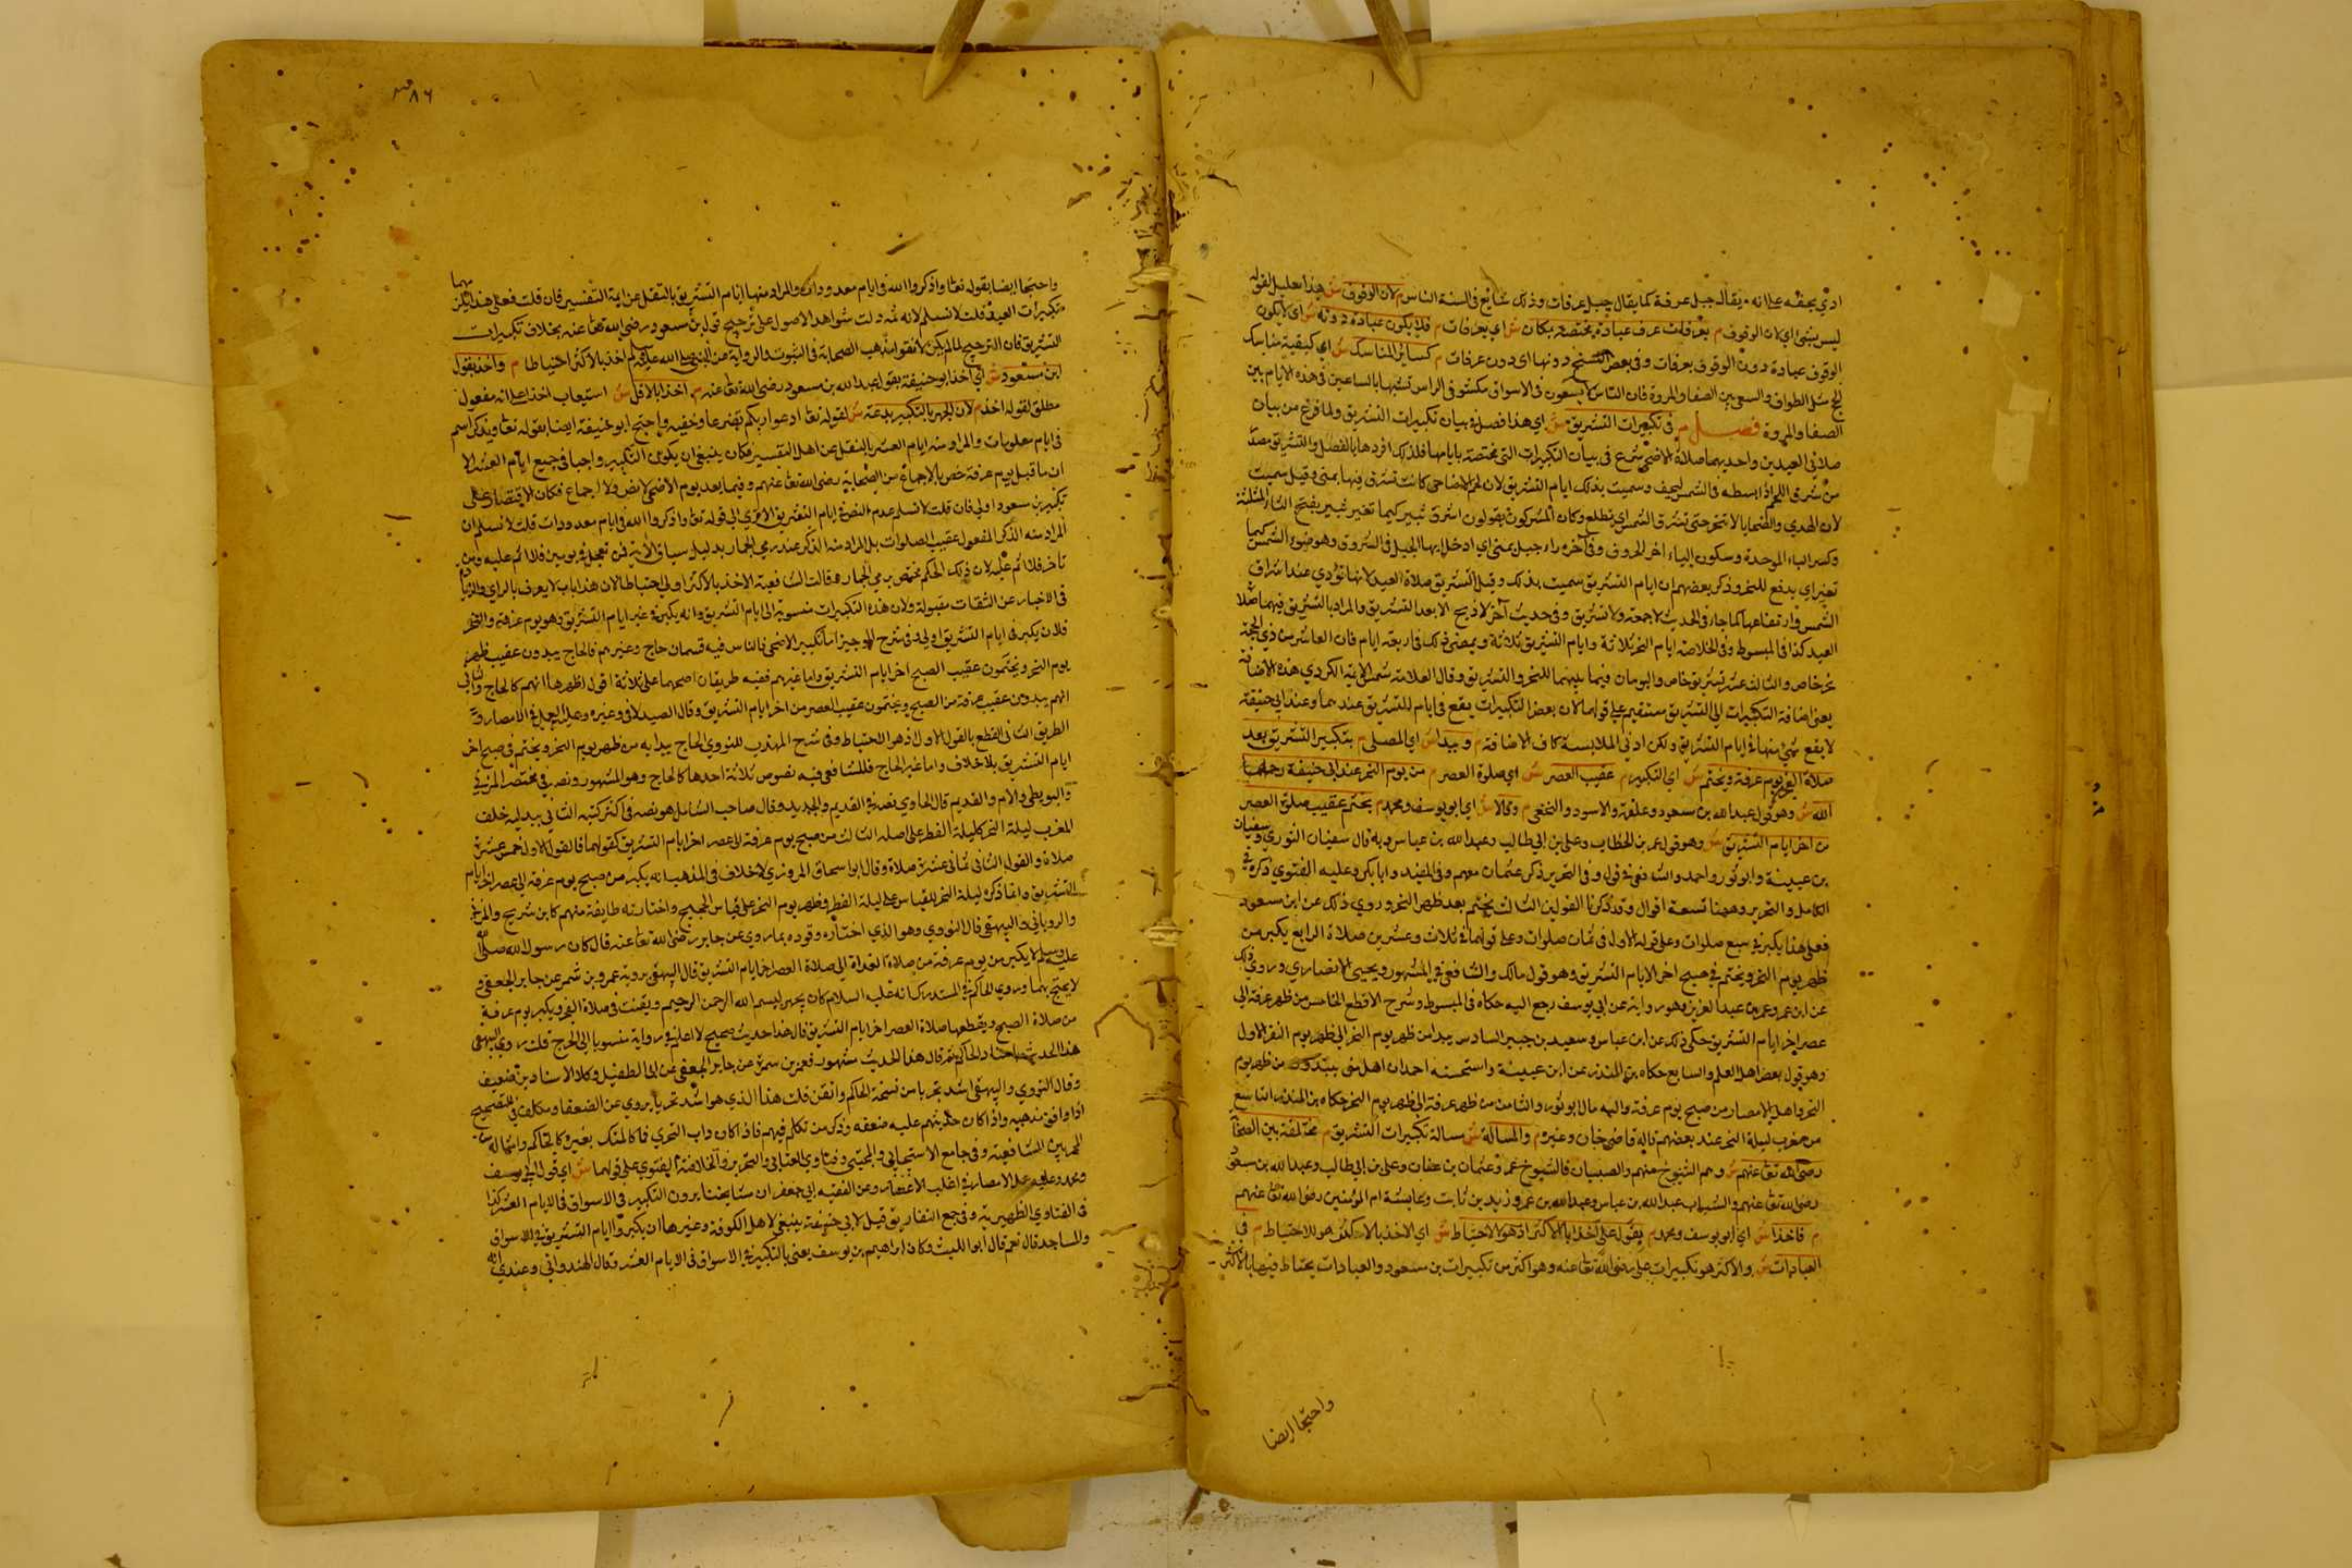 ادى بحقه على انه يقال جبل عرفة كما يقال جبل عرفات وذلك شايع فى السنة الناس م لان الوقوف ش هذا تعليل لقوله
ليس بشئ اى لان الوقوف م بعرفات عرف عبادة مختصة بمكان ش اي بعرفات م فلا يكون عبادة دونه ش اى لا يكون
الوقوف عبادة دون الوقوف بعرفات وفى بعض النسخ دونها اى دون عرفات م كساير المناسك ش اي كبقية مناسك
الحج مثل الطواف والسعى بين الصفا والمروة فان الناس لا يسعون فى الاسواق مكشوفى الراس تشبها بالساعين فى هذه الايام بين
الصفا والمروة فصل م فى تكبيرات التشريق ش اي هذا فصل فى بيان تكبيرات التشريق ولما فرغ من بيان
صلاتى العيدين واحديهما صلاة الاضحى شرع فى بيان التكبيرات التى مختصة بايامها فلذلك افردها بالفصل والتشريق مصدر
من شرق اللحم اذا بسطه فى الشمس ليجف وسميت بذلك ايام التشريق لان لحوم الاضاحى كانت تشرق فيها بمنى وقيل سميت
لان الهدي والضحايا لا تنحر حتى تشرق الشمس اي تطلع وكان المشركون يقولون اشرق ثبير كيما نغير ثبير بفتح الثاء المثلثة
وكسر الباء الموحدة وسكون الياء اخر الحروف وفى آخره راء جبل بمنى اي ادخل ايها الجبل فى الشروق وهو ضوء الشمس كيما
نغير اي ندفع للنحر وذكر بعضهم ان ايام التشريق سميت بذلك وقيل التشريق صلاة العيد لانها تؤدي عند اشراق
الشمس وارتفاعها كما جاء فى الحديث لا جمعة ولا تشريق وفى حديث آخر لا ذبح الا بعد التشريق والمراد بالتشريق فيهما صلاة
العيد كذا فى المبسوط وفى الخلاصة ايام النحر ثلاثة وايام التشريق ثلاثة ويمضى ذلك فى اربعة ايام فان العاشر من ذي الحجة
نحر خاص والثالث عشر تشريق خاص واليومان فيما بينهما للنحر والتشريق وقال العلامة شمس الايمة الكردي هذه الاضافة
يعنى اضافة التكبيرات الى التشريق مستقيم على قولهما لان بعض التكبيرات يقع فى ايام التشريق عندهما وعند ابى حنيفة
لا يقع شئ منها فى ايام التشريق ولكن ادنى الملابسة كاف للاضافة م ويبدا ش اي المصلى م بتكبير التشريق بعد
صلاة الفجر من يوم عرفة ويختم ش اى التكبير م عقيب العصر ش اي صلوة العصر م من يوم النحر عند ابى حنيفة رحمه
الله ش وهو قول عبد الله بن مسعود وعلقمة والاسود والنخعى م وقالا ش اي ابو يوسف ومحمد م يختم عقيب صلوة العصر
من اخر ايام التشريق ش وهو قول عمر بن الخطاب وعلى بن ابي طالب وعبد الله بن عباس وبه قال سفيان الثوري وسفيان
بن عيينة وابو ثور واحمد والشافعى فى قول وفى التحرير ذكر عثمان معهم وفى المفيد وابا بكر وعليه الفتوي ذكره فى
الكامل والتحرير وههنا تسعة اقوال وقد ذكرنا القولين الثالث يختم بعد ظهر النحر وروي ذلك عن ابن مسعود
فعلى هذا يكبر فى سبع صلوات وعلى قوله الاول فى ثمان صلوات وعلى قولهما فى ثلاث وعشرين صلاة الرابع يكبر من
ظهر يوم النحر ويختم فى صبح اخر الايام التشريق وهو قول مالك والشافعى فى المشهور ويحيى الانصاري وروي ذلك
عن ابن عمر وعمر بن عبد العزيز وهو رواية عن ابي يوسف رجع اليه حكاه فى المبسوط وشرح الاقطع الخامس من ظهر عرفة الى
عصر اخر ايام التشريق حكى ذلك عن ابن عباس وسعيد بن جبير السادس يبدا من ظهر يوم النحر الى ظهر يوم النفر الاول
وهو قول بعض اهل العلم والسابع حكاه بن المنذر عن ابن عيينة واستحسنه احمد ان اهل منى يبتدون من ظهر يوم
النحر واهل الامصار من صبح يوم عرفة واليه مال ابو ثور والثامن من ظهر عرفة الى ظهر يوم النحر حكاه بن المنذر التاسع
من مغرب ليلة النحر عند بعضهم قاله قاضى خان وغيره م والمسألة ش مسالة تكبيرات التشريق م مختلفة بين الصحابة
رضى الله تعا عنهم ش وهم الشيوخ منهم والصبيان فالشيوخ عمر وعثمان بن عفان وعلى بن ابي طالب وعبد الله بن مسعود
رضى الله تعا عنهم والشباب عبد الله بن عباس وعبد الله بن عمر وزيد بن ثابت وعايشة ام المؤمنين رضى الله تعا عنهم
م فاخذا ش اي ابو يوسف ومحمد م بقول على اخذا بالاكثر اذ هو الاحتياط ش اي الاخذ بالاكثر هو الاحتياط م فى
العبادات ش والاكثر هو تكبيرات على رضى الله تعا عنه وهو اكثر من تكبيرات بن مسعود والعبادات يحتاط فيها بالاكثر
واحتجا ايضا
٨٦
واحتجا ايضا بقوله تعا واذكروا الله فى ايام معدودات والمراد منها ايام التشريق بالنقل عن ايمة التفسير فان قلت فعلى هذا يلزمهما
تكبيرات العيد قلت لا نسلم لانه ثمه دلت شواهد الاصول على ترجيح قول بن مسعود رضى الله تعا عنه بخلاف تكبيرات
التشريق فان الترجيح لما لم يكن لانه قول مذهب الصحابة فى الثبوت والرواية من النبى صلى الله عليه وسلم اخذ بالاكثر احتياطا م واخذ بقول
ابن مسعود ش اي اخذ ابو حنيفة بقول عبد الله بن مسعود رضى الله تعا عنه م اخذا بالاقل ش استيعاب اخذا على انه مفعول
مطلق لقوله اخذ م لان الجهر بالتكبير بدعة ش لقوله تعا ادعوا ربكم تضرعا وخفيه واحتج ابو حنيفة ايضا بقوله تعا ويذكروا اسم
فى ايام معلومات والمراد منه ايام العشر بالنقل عن اهل التفسير فكان ينبغى ان يكون التكبير واجبا فى جميع ايام العشر الا
ان ما قبل يوم عرفة خص بالاجماع من الصحابة رضى الله تعا عنهم وفيما بعد يوم الاضحى لا نص ولا اجماع فكان الاقتصار على
تكبير بن مسعود اولى فان قلت لا نسلم عدم النص فى ايام التشريق الاتري الى قوله تعا واذكروا الله فى ايام معدودات قلت لا نسلم ان
المراد منه الذكر المفعول عقيب الصلوات بل المراد منه الذكر عند رمى الجمار بدليل سياق الاية فمن تعجل فى يومين فلا اثم عليه ومن
تاخر فلا اثم عليه لان ذلك الحكم مختص برمى الجمار وقالت الشافعية الاخذ بالاكثر اولى احتياطا لان هذا باب لا يعرف بالراي والزيادة
فى الاخبار عن الثقات مقبولة ولان هذه التكبيرات منسوبة الى ايام التشريق وانه يكبر فى غير ايام التشريق وهو يوم عرفة والنحر
فلان يكبر فى ايام التشريق اولى وفى شرح الوجيز اما تكبير الاضحى فالناس فيه قسمان حاج وغيرهم فالحاج يبدون عقيب ظهر
يوم النحر ويختمون عقيب الصبح اخر ايام التشريق واما غيرهم ففيه طريقان اصحهما على ثلاثة اقوال اظهرها انهم كالحاج والثانى
انهم يبدون عقيب عرفة من الصبح ويختمون عقيب العصر من اخر ايام التشريق وقال الصيدلانى وغيره وعليه العمل فى الامصار و
الطريق الثانى القطع بالقول الاول وهو الاحتياط وفى شرح المهذب للنووي الحاج يبدا به من ظهر يوم النحر ويختم فى صبح اخر
ايام التشريق بلا خلاف واما غير الحاج فللشافعى فيه نصوص ثلاثة احدها كالحاج وهو المشهور ونصه فى مختصر المزنى
والبويطى والام والقديم قال الحاوي نصه فى القديم والجديد وقال صاحب الشامل هو نصه فى اكثر كتبه الثانى يبدا به خلف
المغرب ليلة النحر كليلة الفطر على اصله الثالث من صبح يوم عرفة الى عصر اخر ايام التشريق كقولهما فالقول الاول خمس عشرة
صلاة والقول الثانى ثمانى عشرة صلاة وقال ابو اسحاق المروزي لا خلاف فى المذهب انه يكبر من صبح يوم عرفة الى عصر اخر ايام
التشريق وانما ذكره ليلة النحر للقياس على ليلة الفطر وظهر يوم النحر على قياس الحجيج واختارته طايفة منهم كابن شريح والمزنى
والرويانى والبيهقى قال النووي وهو الذي اختاره وقوده بما روي عن جابر رضى الله تعا عنه قال كان رسول الله صلى الله
عليه وسلم لا يكبر من يوم عرفة من صلاة الغداة الى صلاة العصر اخر ايام التشريق قال البيهقى يرويه عمرو بن شمر عن جابر الجعفى و
لا يحتج بهما وروي الحاكم فى المستدرك انه عليه السلام كان يجهر ببسم الله الرحمن الرحيم ويقنت فى صلاة الفجر ويكبر يوم عرفة
من صلاة الصبح ويقطعها صلاة العصر اخر ايام التشريق قال هذا حديث صحيح لا اعلم فى رواية منسوبا الى الجرح قلت روي البيهقى
هذا الحديث باسناد الحاكم ثم قال هذا الحديث مشهور فعمر بن سمرة عن جابر الجعفى عن ابى الطفيل وكلا الاسنادين ضعيف
وقال النووي والبيهقى اشد تحريا من شيخه الحاكم واتقن قلت هذا الذي هو اشد تحريا يروي عن الضعفا وسكت فى التصحيح
اذا وافق مذهبه واذا كان حديثهم عليه ضعفه وذكر من تكلم فيهم فاذا كان داب التحري فا كالمتك بغيره كالحاكم وامثاله من
المحمديين الشافعية وفى جامع الاسبيجابى والمجتبى وفتاوي العتابى والتحرير والخلاصة الفتوي على قولهما ش اي قول ابى يوسف
ومحمد وعليه عمل الامصار فى اغلب الاعصار وعن الفقيه ابى جعفر ان مشايخنا يرون التكبير فى الاسواق فى الايام العشر كذا
فى الفتاوي الظهيرية وفى جمع التفاريق قيل لابى حنيفة ينبغى لاهل الكوفة وغيرها ان يكبروا ايام التشريق فى الاسواق
والمساجد قال نعم قال ابو الليث وكان ابراهيم بن يوسف يعنى بالتكبير فى الاسواق فى الايام العشر وقال الهندوانى وعندي انه